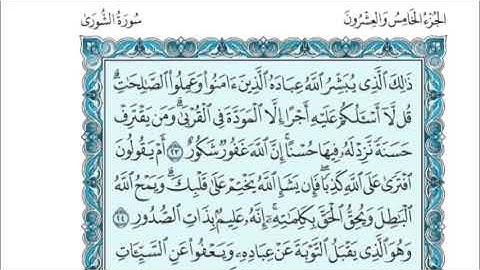 الجُزْءُ الخَامِسُ وَالعِشْرُونَ
سُورَةُ الشُّورَىٰ
ذَٰلِكَ ٱلَّذِى يُبَشِّرُ ٱللَّهُ عِبَادَهُ ٱلَّذِينَ ءَامَنُوا۟ وَعَمِلُوا۟ ٱلصَّٰلِحَٰتِۗ
قُل لَّآ أَسْـَٔلُكُمْ عَلَيْهِ أَجْرًا إِلَّا ٱلْمَوَدَّةَ فِى ٱلْقُرْبَىٰۗ وَمَن يَقْتَرِفْ
حَسَنَةً نَّزِدْ لَهُۥ فِيهَا حُسْنًاۚ إِنَّ ٱللَّهَ غَفُورٌ شَكُورٌ ٢٣ أَمْ يَقُولُونَ
ٱفْتَرَىٰ عَلَى ٱللَّهِ كَذِبًاۖ فَإِن يَشَإِ ٱللَّهُ يَخْتِمْ عَلَىٰ قَلْبِكَۗ وَيَمْحُ ٱللَّهُ
ٱلْبَٰطِلَ وَيُحِقُّ ٱلْحَقَّ بِكَلِمَٰتِهِۦٓۚ إِنَّهُۥ عَلِيمٌۢ بِذَاتِ ٱلصُّدُورِ ٢٤
وَهُوَ ٱلَّذِى يَقْبَلُ ٱلتَّوْبَةَ عَنْ عِبَادِهِۦ وَيَعْفُوا۟ عَنِ ٱلسَّيِّـَٔاتِ